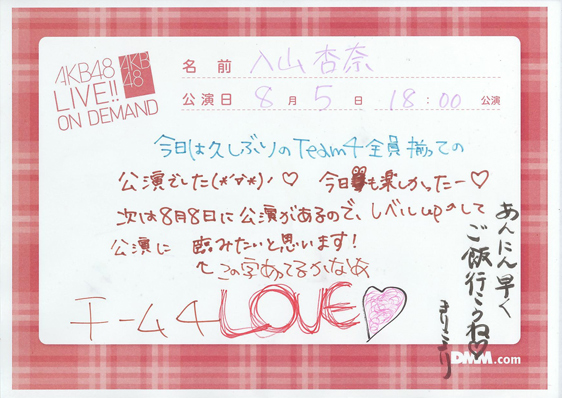 AKB48
LIVE!!
ON DEMAND
AKB
48
名前 入山杏奈
公演日 8月5日 18:00 公演
今日は久しぶりのTeam4全員揃っての
公演でした(*'▽'*)ノ♡ 今日も楽しかったー♡
次は8月8日に公演があるので、レベルupして
公演に 臨みたいと思います!
↑この字あってるかなぁ
チーム4 LOVE♡
あんにん早く
ご飯行こうね♡
DMM.com